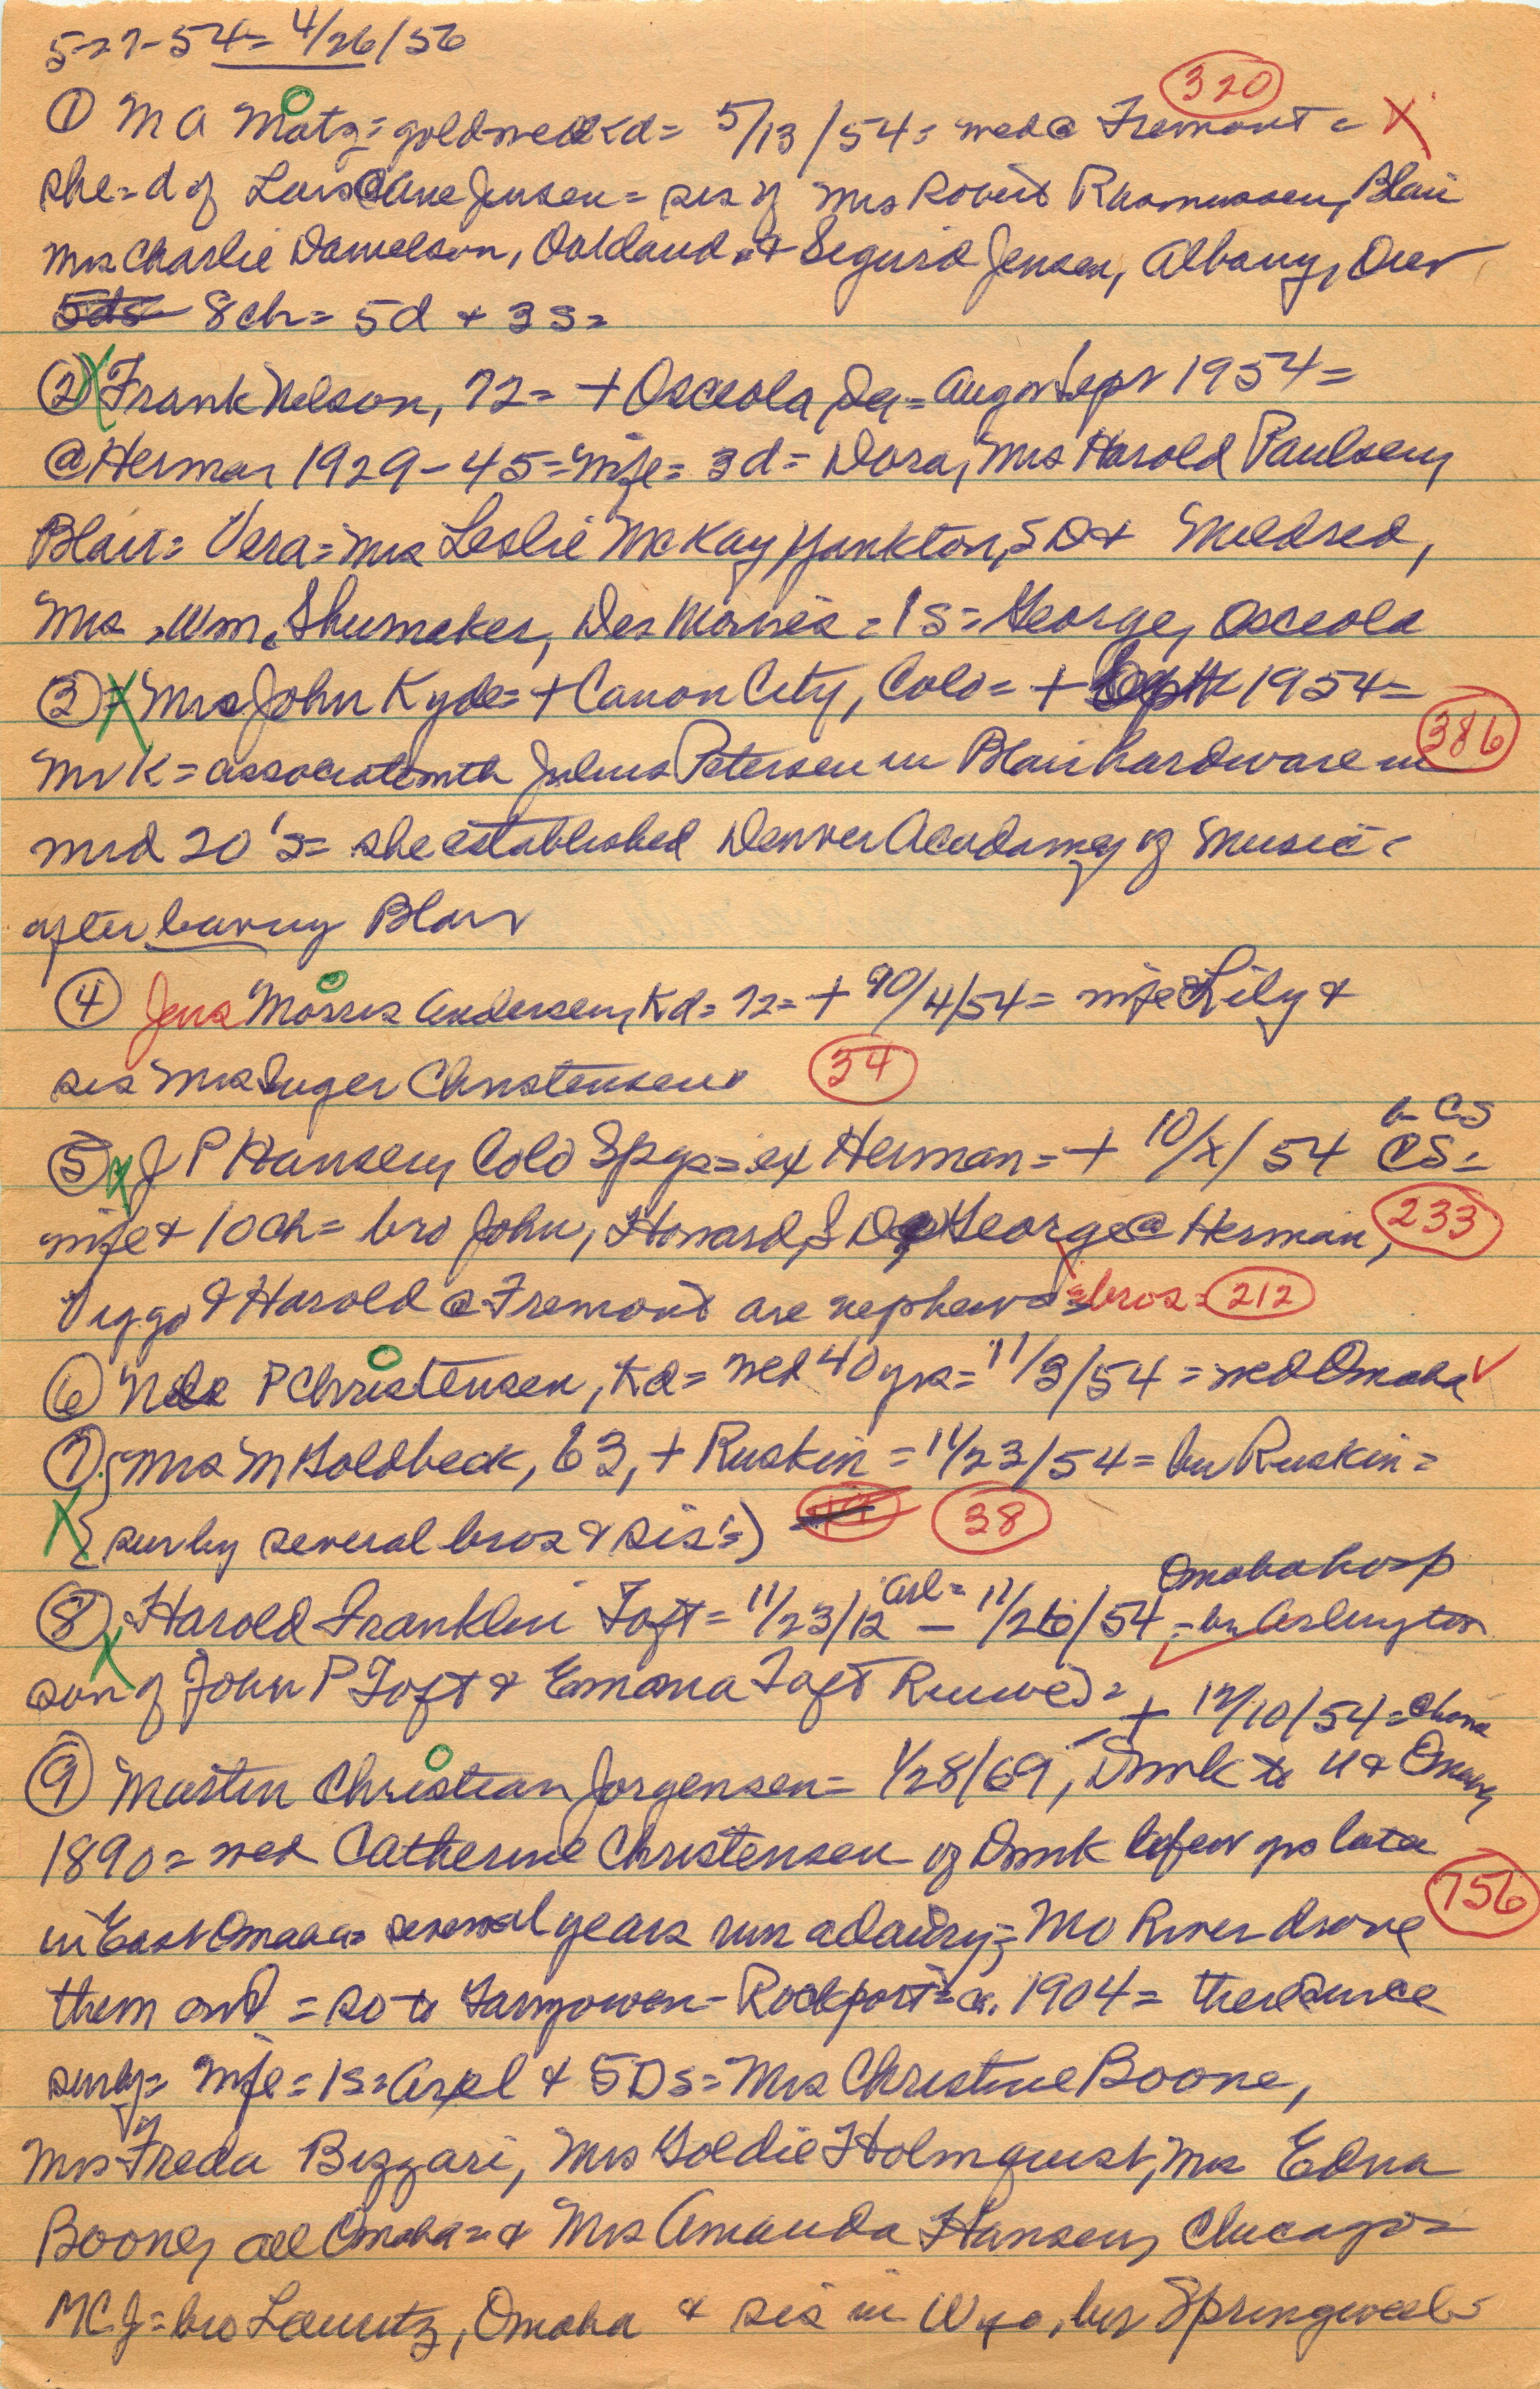 5-27-54= 4/26/56
320
① M A Matz= goldwed Kd= 5/13/54= wed @ Fremont = X
she= d of Lars @ Ane Jensen= sis of Mrs Robert Rasmussen, Blair
Mrs Charlie Danielson, Oakland & Sigurd Jensen, Albany, Ore
5ds 8ch= 5d + 3s=
② X Frank Nelson, 72= + Osceola, Ia= Aug or Sept 1954=
@ Herman 1929-45= wife= 3d= Dora, Mrs Harold Paulsen,
Blair= Vera= Mrs Leslie McKay Yankton, SD & Mildred,
Mrs Wm. Shumaker, Des Moines= 1s= George, Osceola
③= X Mrs John Kyde= + Canon City, Colo= + Sept 1954=
386
Mr K= associated with Julius Petersen in Blair hardware in
mid 20's= she established Denver Academy of Music=
after leaving Blair
④ Jens Morris Andersen, Kd= 72= + 10/4/54= wife Lily &
sis Mrs Inger Christensen 34
b CS
⑤ X J P Hansen, Colo Spgs= ex Herman= + 10/x/54 CS=
wife & 10ch= bro John, Howard, S D & George @ Herman, 233
Viggo & Harold @ Fremont are nephews =bros= 212
⑥ Nels P Christensen, Kd= wed 40 yrs= 11/3/54= wed Omaha ✓
⑦ Mrs M Goldbeck, 63, + Ruskin= 11/23/54= bu Ruskin=
X sur by several bros & sis=) 38
Omaha hosp
⑧ X Harold Franklin Toft= 11/23/12 Arl= - 11/26/54= bu Arlington
son of John P Toft & Emma Toft
+ 12/10/54= @ home
⑨ Martin Christian Jorgensen= 1/28/69, Dmk to U & Omaha
1890= wed Catherine Christensen of Dmk few yrs later
756
in East Omaha= several years run a dairy= Mo River drove
them out= so to Rockport= ca. 1904= there since
sur by= wife= 1s= Axel & 5Ds= Mrs Christine Boone,
Mrs Freda Bizzari, Mrs Goldie Holmquist, Mrs Edna
Boone, all Omaha= & Mrs Amanda Hansen, Chicago=
MCJ= bro Lauritz, Omaha & sis in Wyo, bur Springwell=